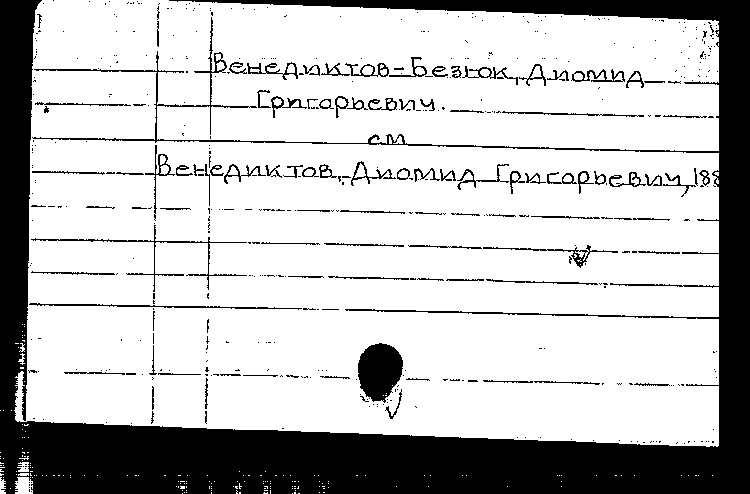 Венедиктов-Безюк, Диомид
Григорьевич.
см
Венедиктов, Диомид Григорьевич, 188